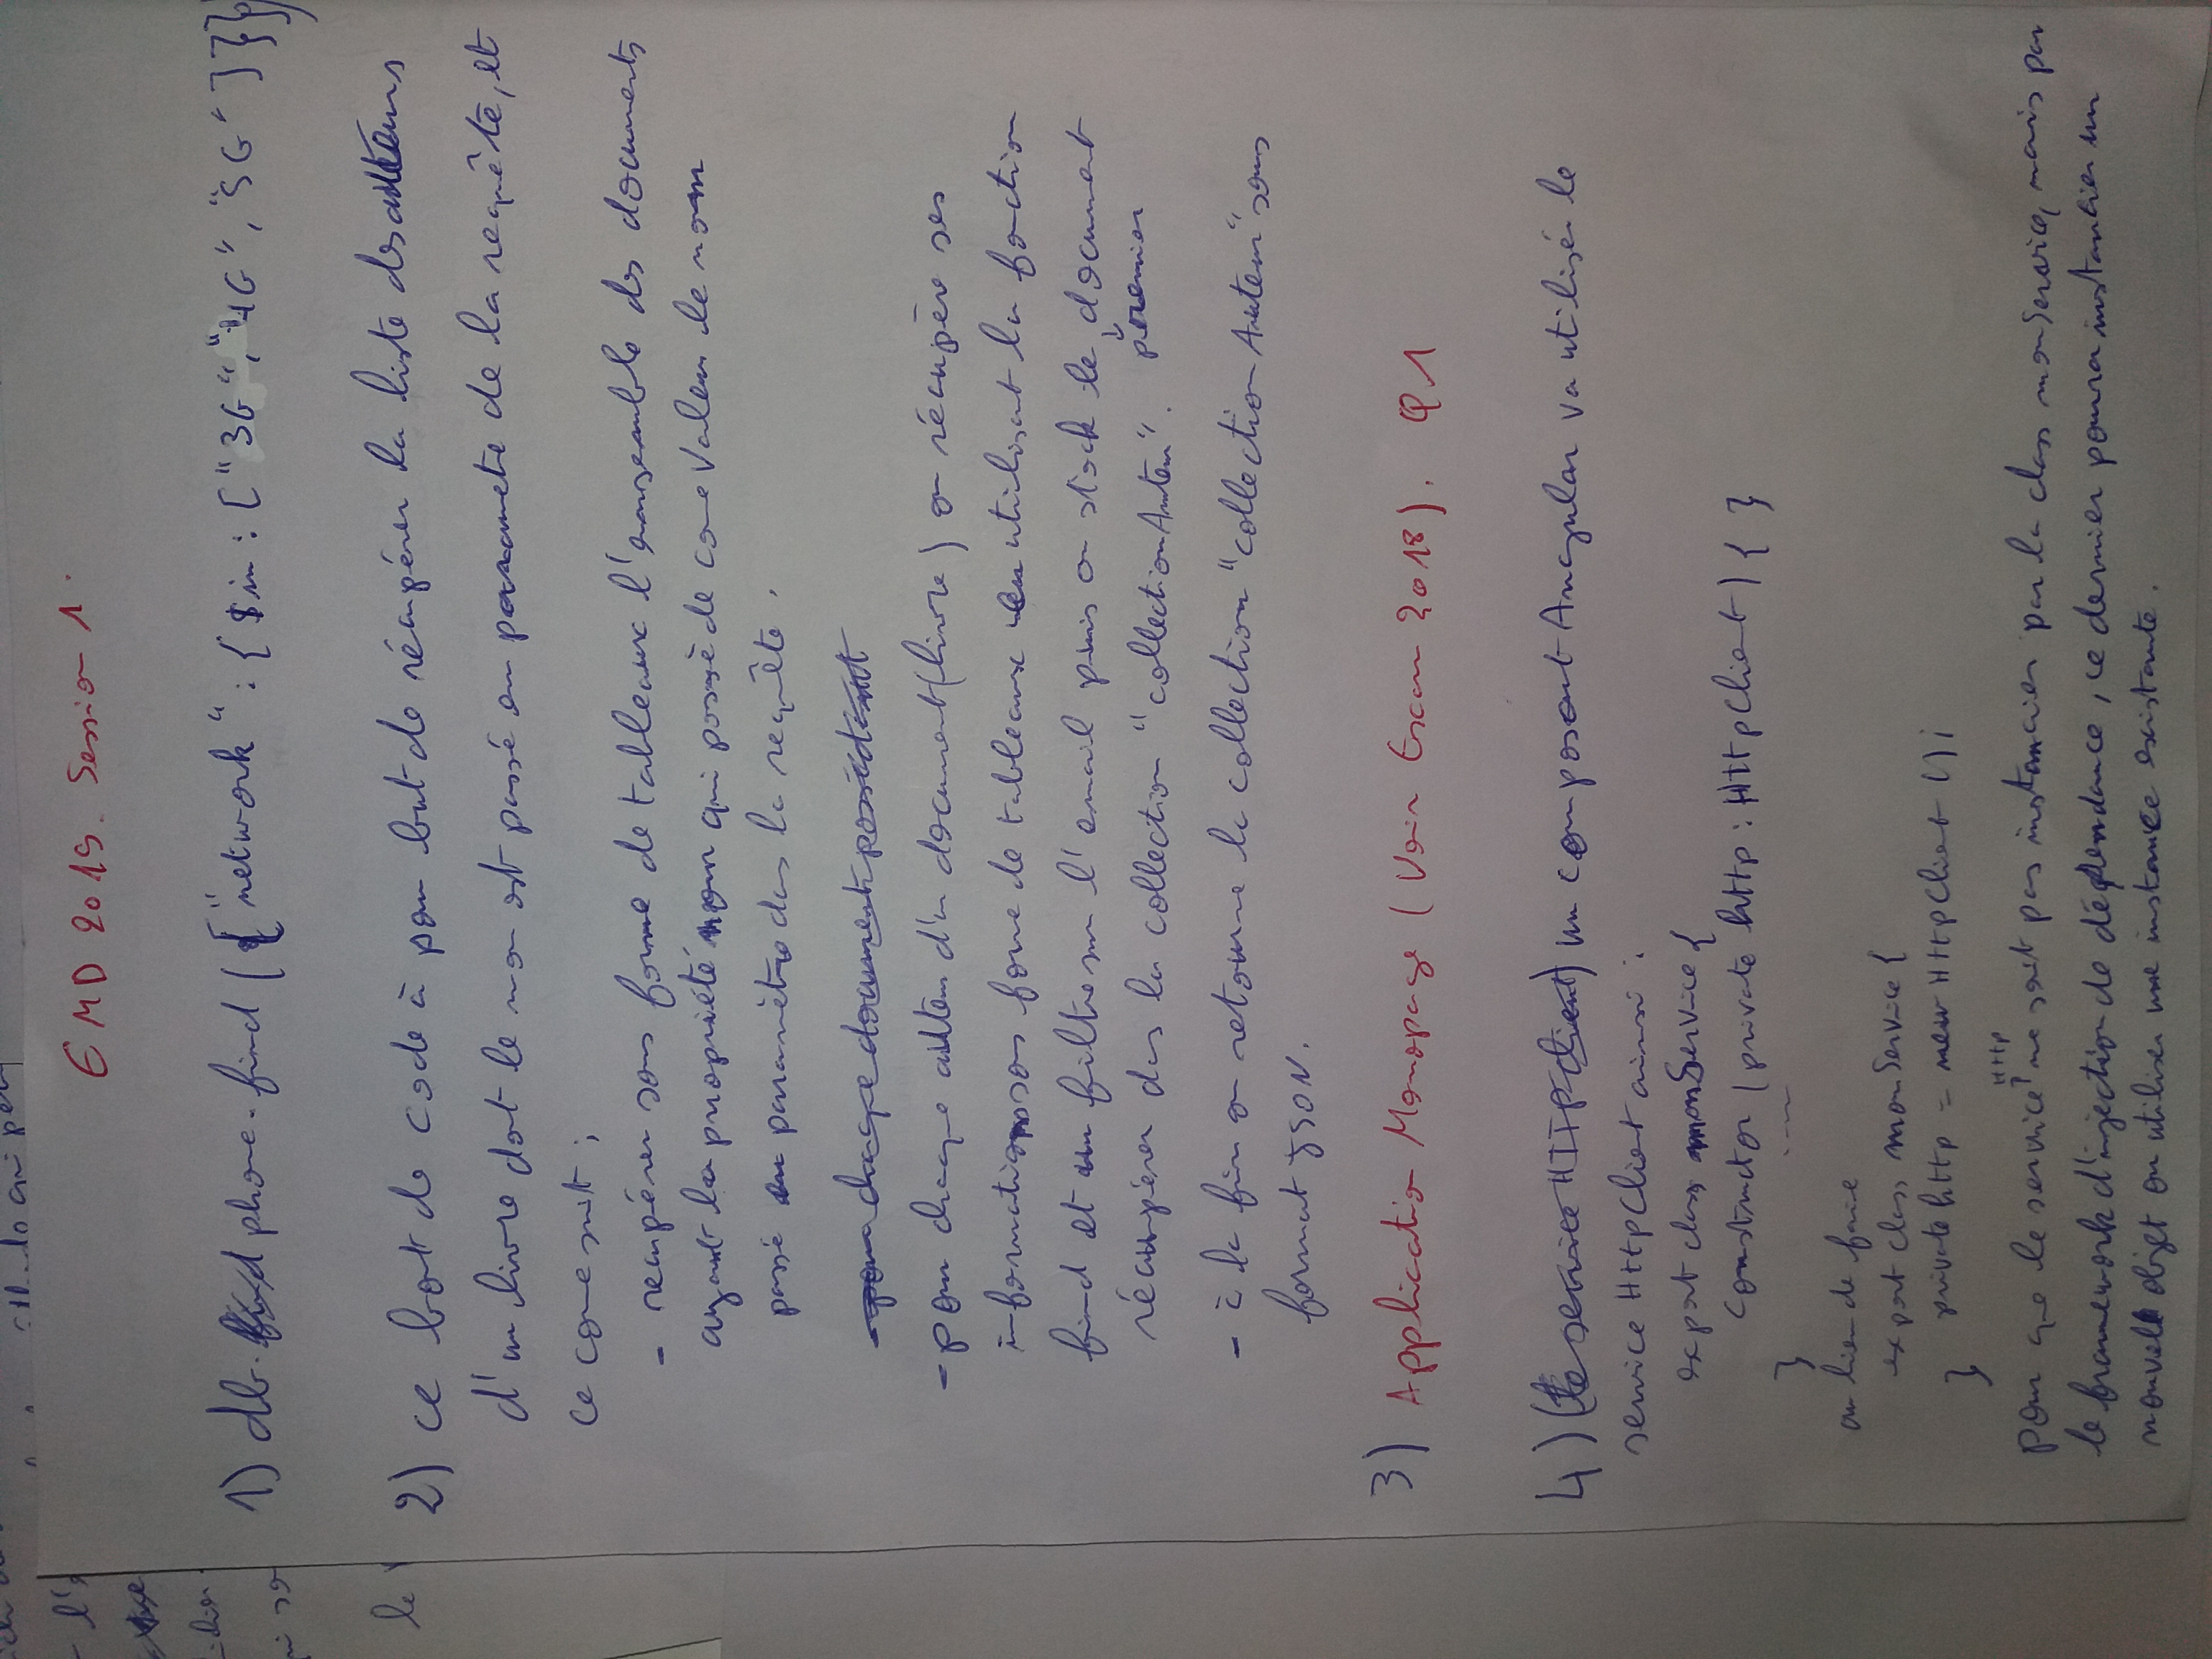 EMD 2019. Session 1.
1) db. phone.find ({"network" : { $in : ["3G", "4G", "5G"]}})
2) ce bout de code à pour but de récupérer la liste des auteurs
d'un livre dont le nom est passé en parametre de la requête, et
ce comme suit ;
- recupérer sous forme de tableaux l'ensemble des documents
ayant la propriété nom qui possède comme valeur le nom
passé en paramètre dans la requête.
- pour chaque document possédant
- pour chaque auteur d'un document (livre) on récupère ses
informations sous forme de tableaux en utilisant la fonction
find et un filtre sur l'email puis on stock le document
premier
récupérer dans la collection "collectionAuteur".
- à la fin on retourne la collection "collection Auteur" sous
format JSON.
3) Application Monopage (Voir Exam 2018). Q1
4) (le service HTTPClient) un composant Angular va utiliser le
service HttpClient ainsi :
export class monService {
constructor (private http : HttpClient) { }
----
}
au lieu de faire
export class monService {
private http = new HttpClient ();
}
Http
pour que le service ne soit pas instancier par la class monService, mais par
le framework d'injection de dépendance, ce dernier pourra instancier un
nouvel objet ou utiliser une instance existante.